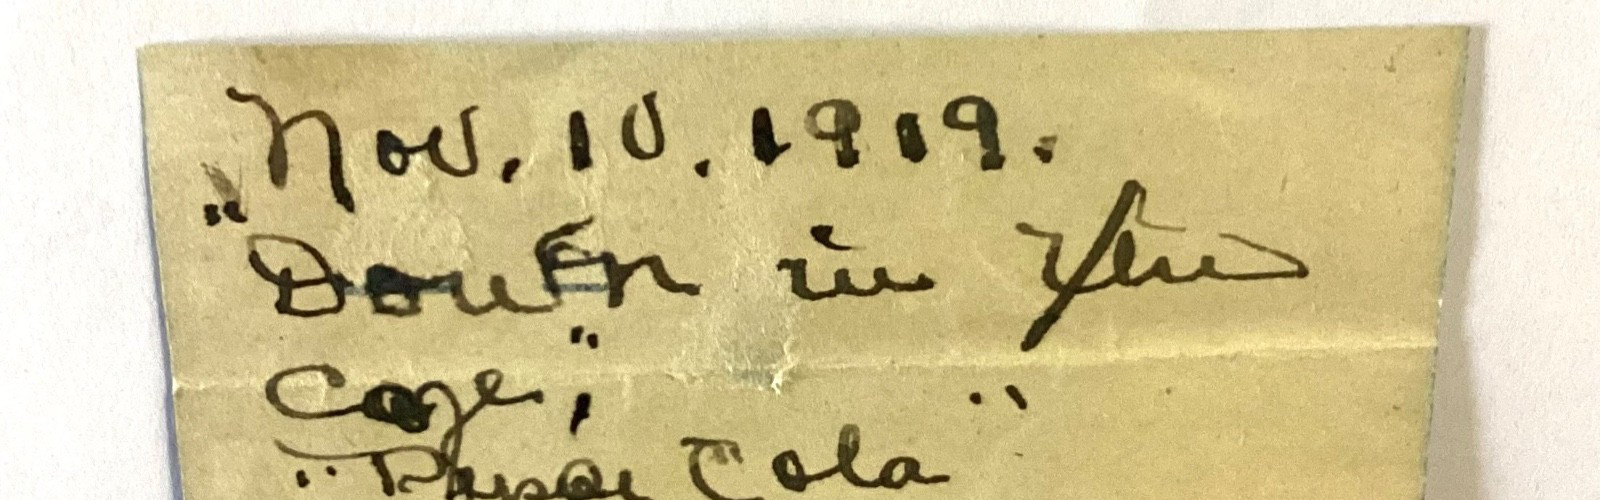 Nov. 10. 1919.
"Down in the
Cage",
"Pepsi Cola"